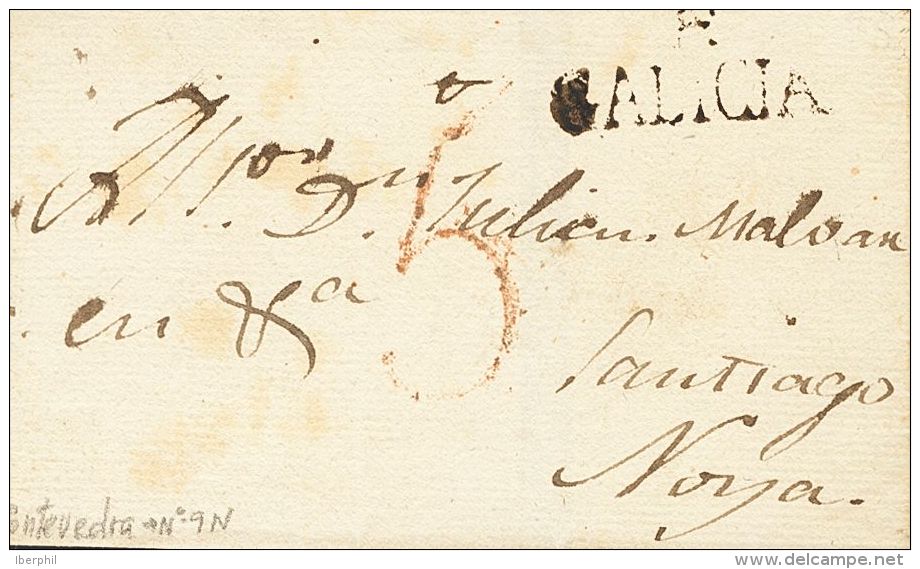 P.
GALICIA
5
Al Sor Dn. Julian Malvar
en &a
Santiago
Noya.
Pontevedra → Nº 9 N
Iberphil
www.delcampe.net